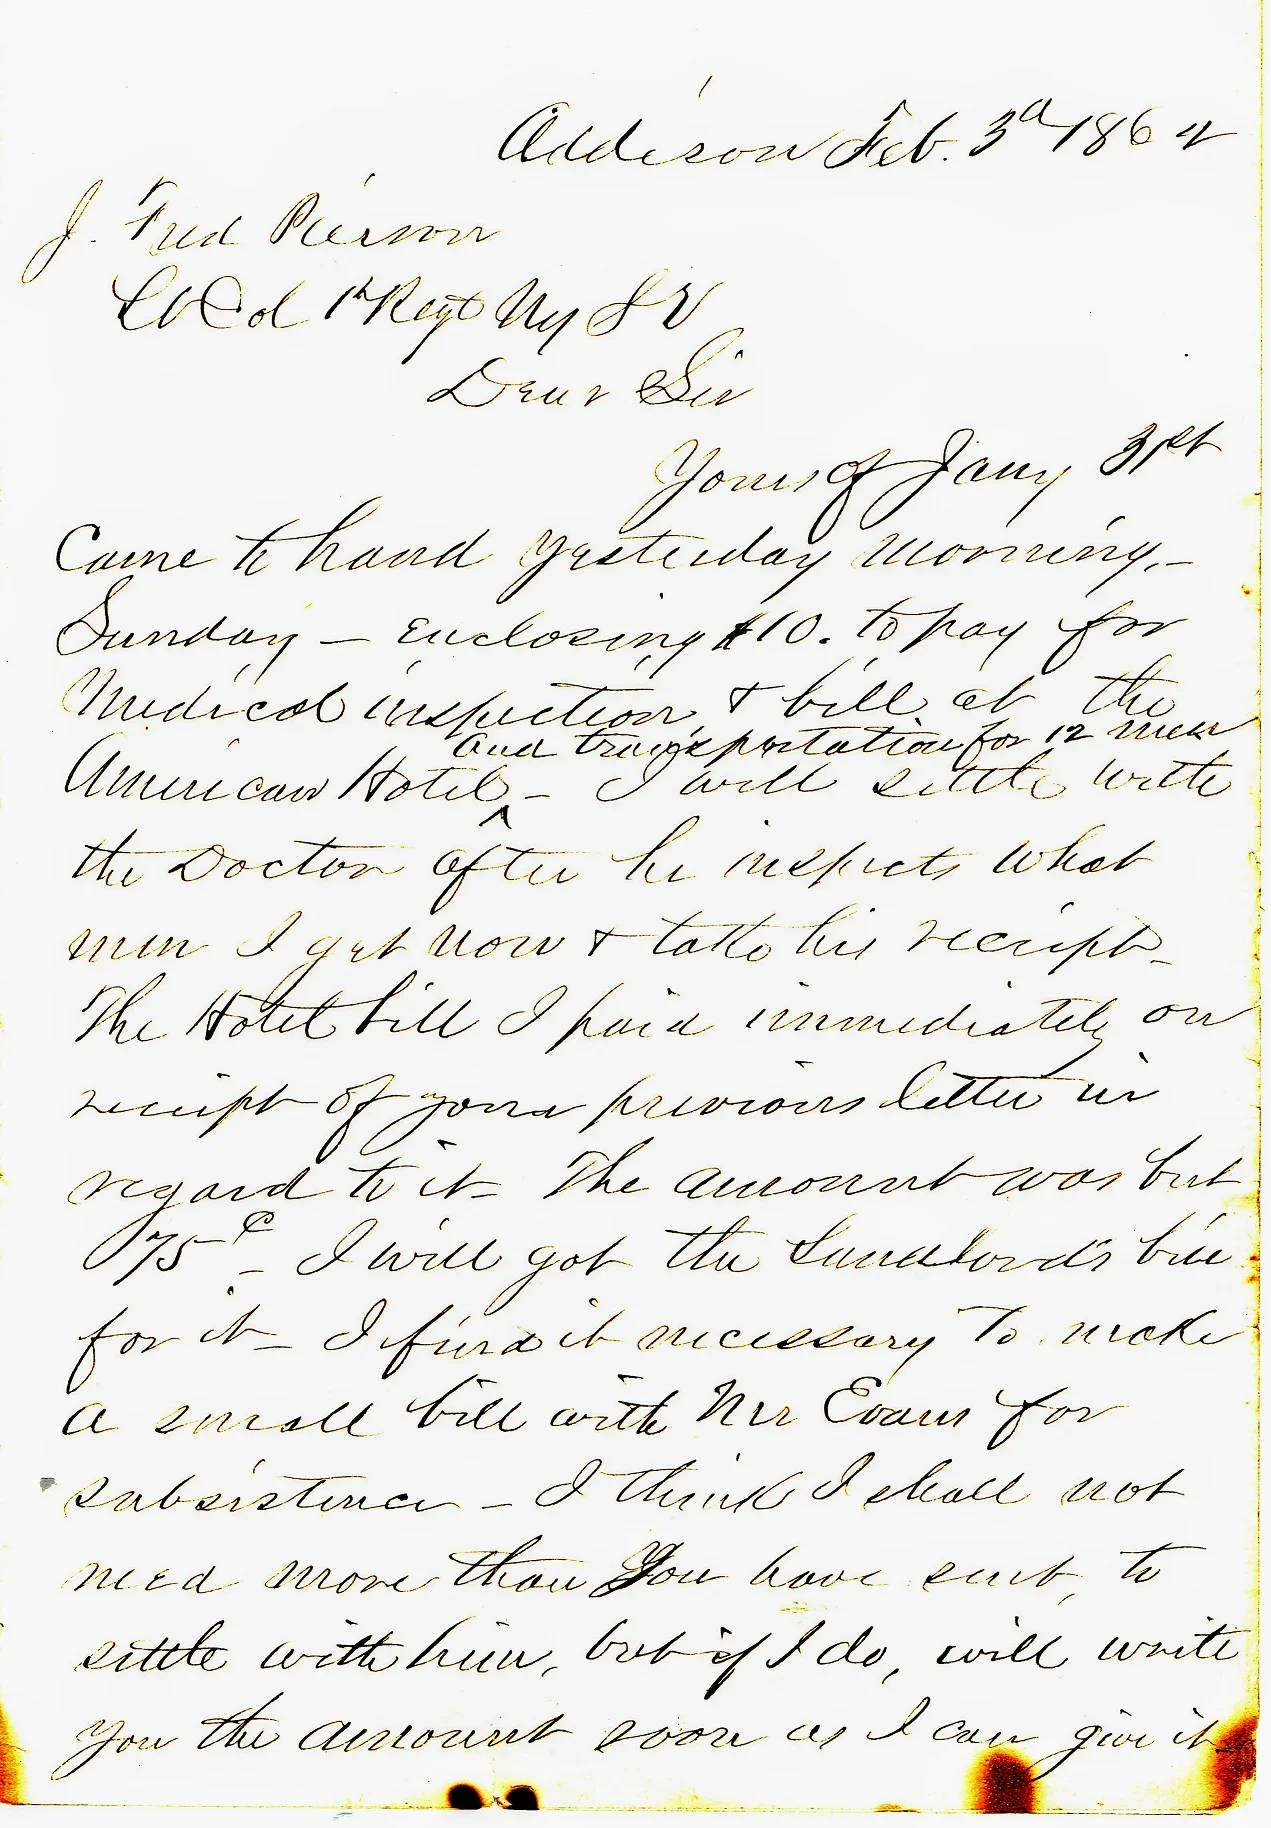 Addison Feb. 3d 1862
J. Fred Pierson
Lt Col 1st Regt Ny S V
Dear Sir
Yours of Jany 31st
Came to hand yesterday morning, -
Sunday - enclosing $10. to pay for
Medical inspection, & bill at the
and transportation for 12 men
American Hotel ^ - I will settle with
the Doctor after he inspects what
men I get now & take his receipt -
The Hotel bill I paid immediately on
receipt of your previous letter in
regard to it - The amount was but
75c. - I will get the Landlord's bill
for it - I find it necessary to make
a small bill with Mr Evans for
subsistence - I think I shall not
need more than you have sent, to
settle with him, but if I do, will write
you the amount soon as I can give it